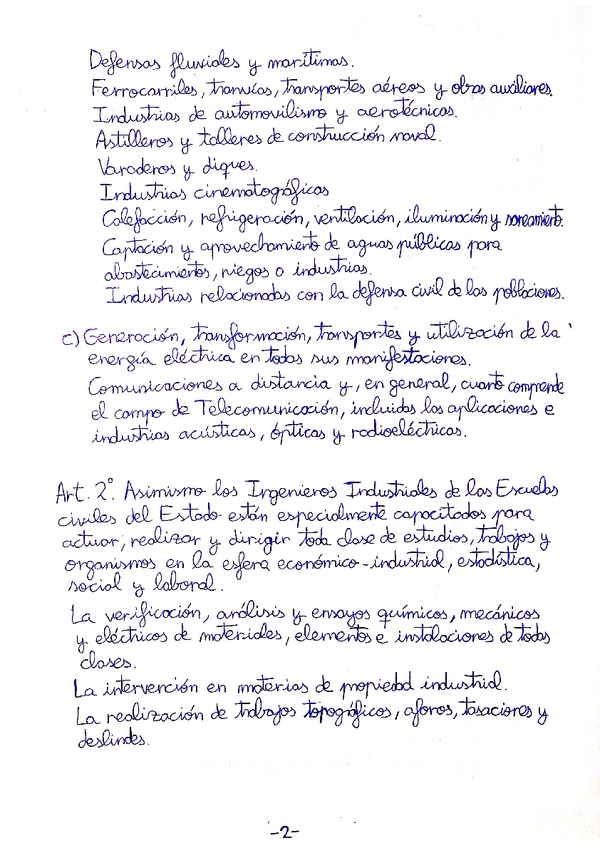 Defensas fluviales y marítimas.
Ferrocarriles, tranvías, transportes aéreos y obras auxiliares.
Industrias de automovilismo y aerotécnicas.
Astilleros y talleres de construcción naval.
Varaderos y diques.
Industrias cinematográficas
Calefacción, refrigeración, ventilación, iluminación y saneamiento.
Captación y aprovechamiento de aguas públicas para
abastecimientos, riegos o industrias.
Industrias relacionadas con la defensa civil de las poblaciones.
c) Generación, transformación, transportes y utilización de la
energía eléctrica en todas sus manifestaciones.
Comunicaciones a distancia y, en general, cuanto comprende
el campo de Telecomunicación, incluidas las aplicaciones e
industrias acústicas, ópticas y radioeléctricas.
Art. 2º. Asimismo los Ingenieros Industriales de las Escuelas
civiles del Estado están especialmente capacitados para
actuar, realizar y dirigir toda clase de estudios, trabajos y
organismos en la esfera económico-industrial, estadística,
social y laboral.
La verificación, análisis y ensayos químicos, mecánicos
y eléctricos de materiales, elementos e instalaciones de todas
clases.
La intervención en materias de propiedad industrial.
La realización de trabajos topográficos, aforos, tasaciones y
deslindes.
-2-